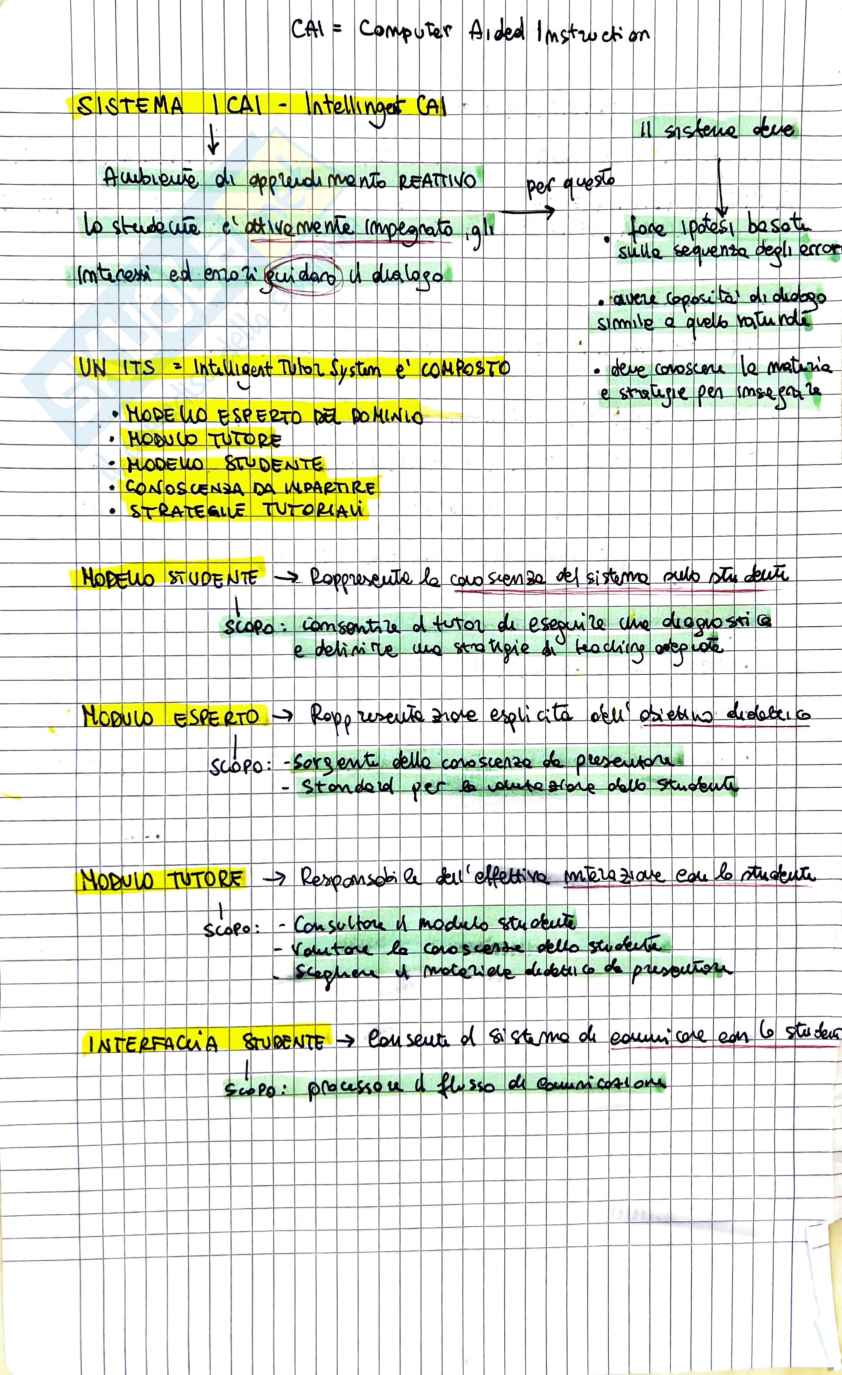 CAI = Computer Aided Instruction
SISTEMA ICAI - Intellingent CAI
Ambiente di apprendimento REATTIVO
lo studente e' attivamente impegnato, gli
interessi ed errori guidano il dialogo
per questo
Il sistema deve
• fare ipotesi basate
sulla sequenza degli errori
• avere capacità di dialogo
simile a quello naturale
• deve conoscere la materia
e strategie per insegnare
UN ITS = Intelligent Tutor System e' COMPOSTO
• MODELLO ESPERTO DEL DOMINIO
• MODULO TUTORE
• MODELLO STUDENTE
• CONOSCENZA DA IMPARTIRE
• STRATEGIE TUTORIALI
MODELLO STUDENTE → Rappresenta la conoscenza del sistema sullo studente
SCOPO: consentire al tutor di eseguire una diagnostica
e definire una strategie di teaching adeguata
MODULO ESPERTO → Rappresentazione esplicita dell' obiettivo didattico
SCOPO: - Sorgente della conoscenza da presentare
- Standard per la valutazione dello studente
...
MODULO TUTORE → Responsabile dell'effettiva interazione con lo studente
SCOPO: - Consultare il modulo studente
- Valutare la conoscenza dello studente
- Scegliere il materiale didattico da presentare
INTERFACCIA STUDENTE → Consente al sistema di comunicare con lo studente
SCOPO: processare il flusso di comunicazione